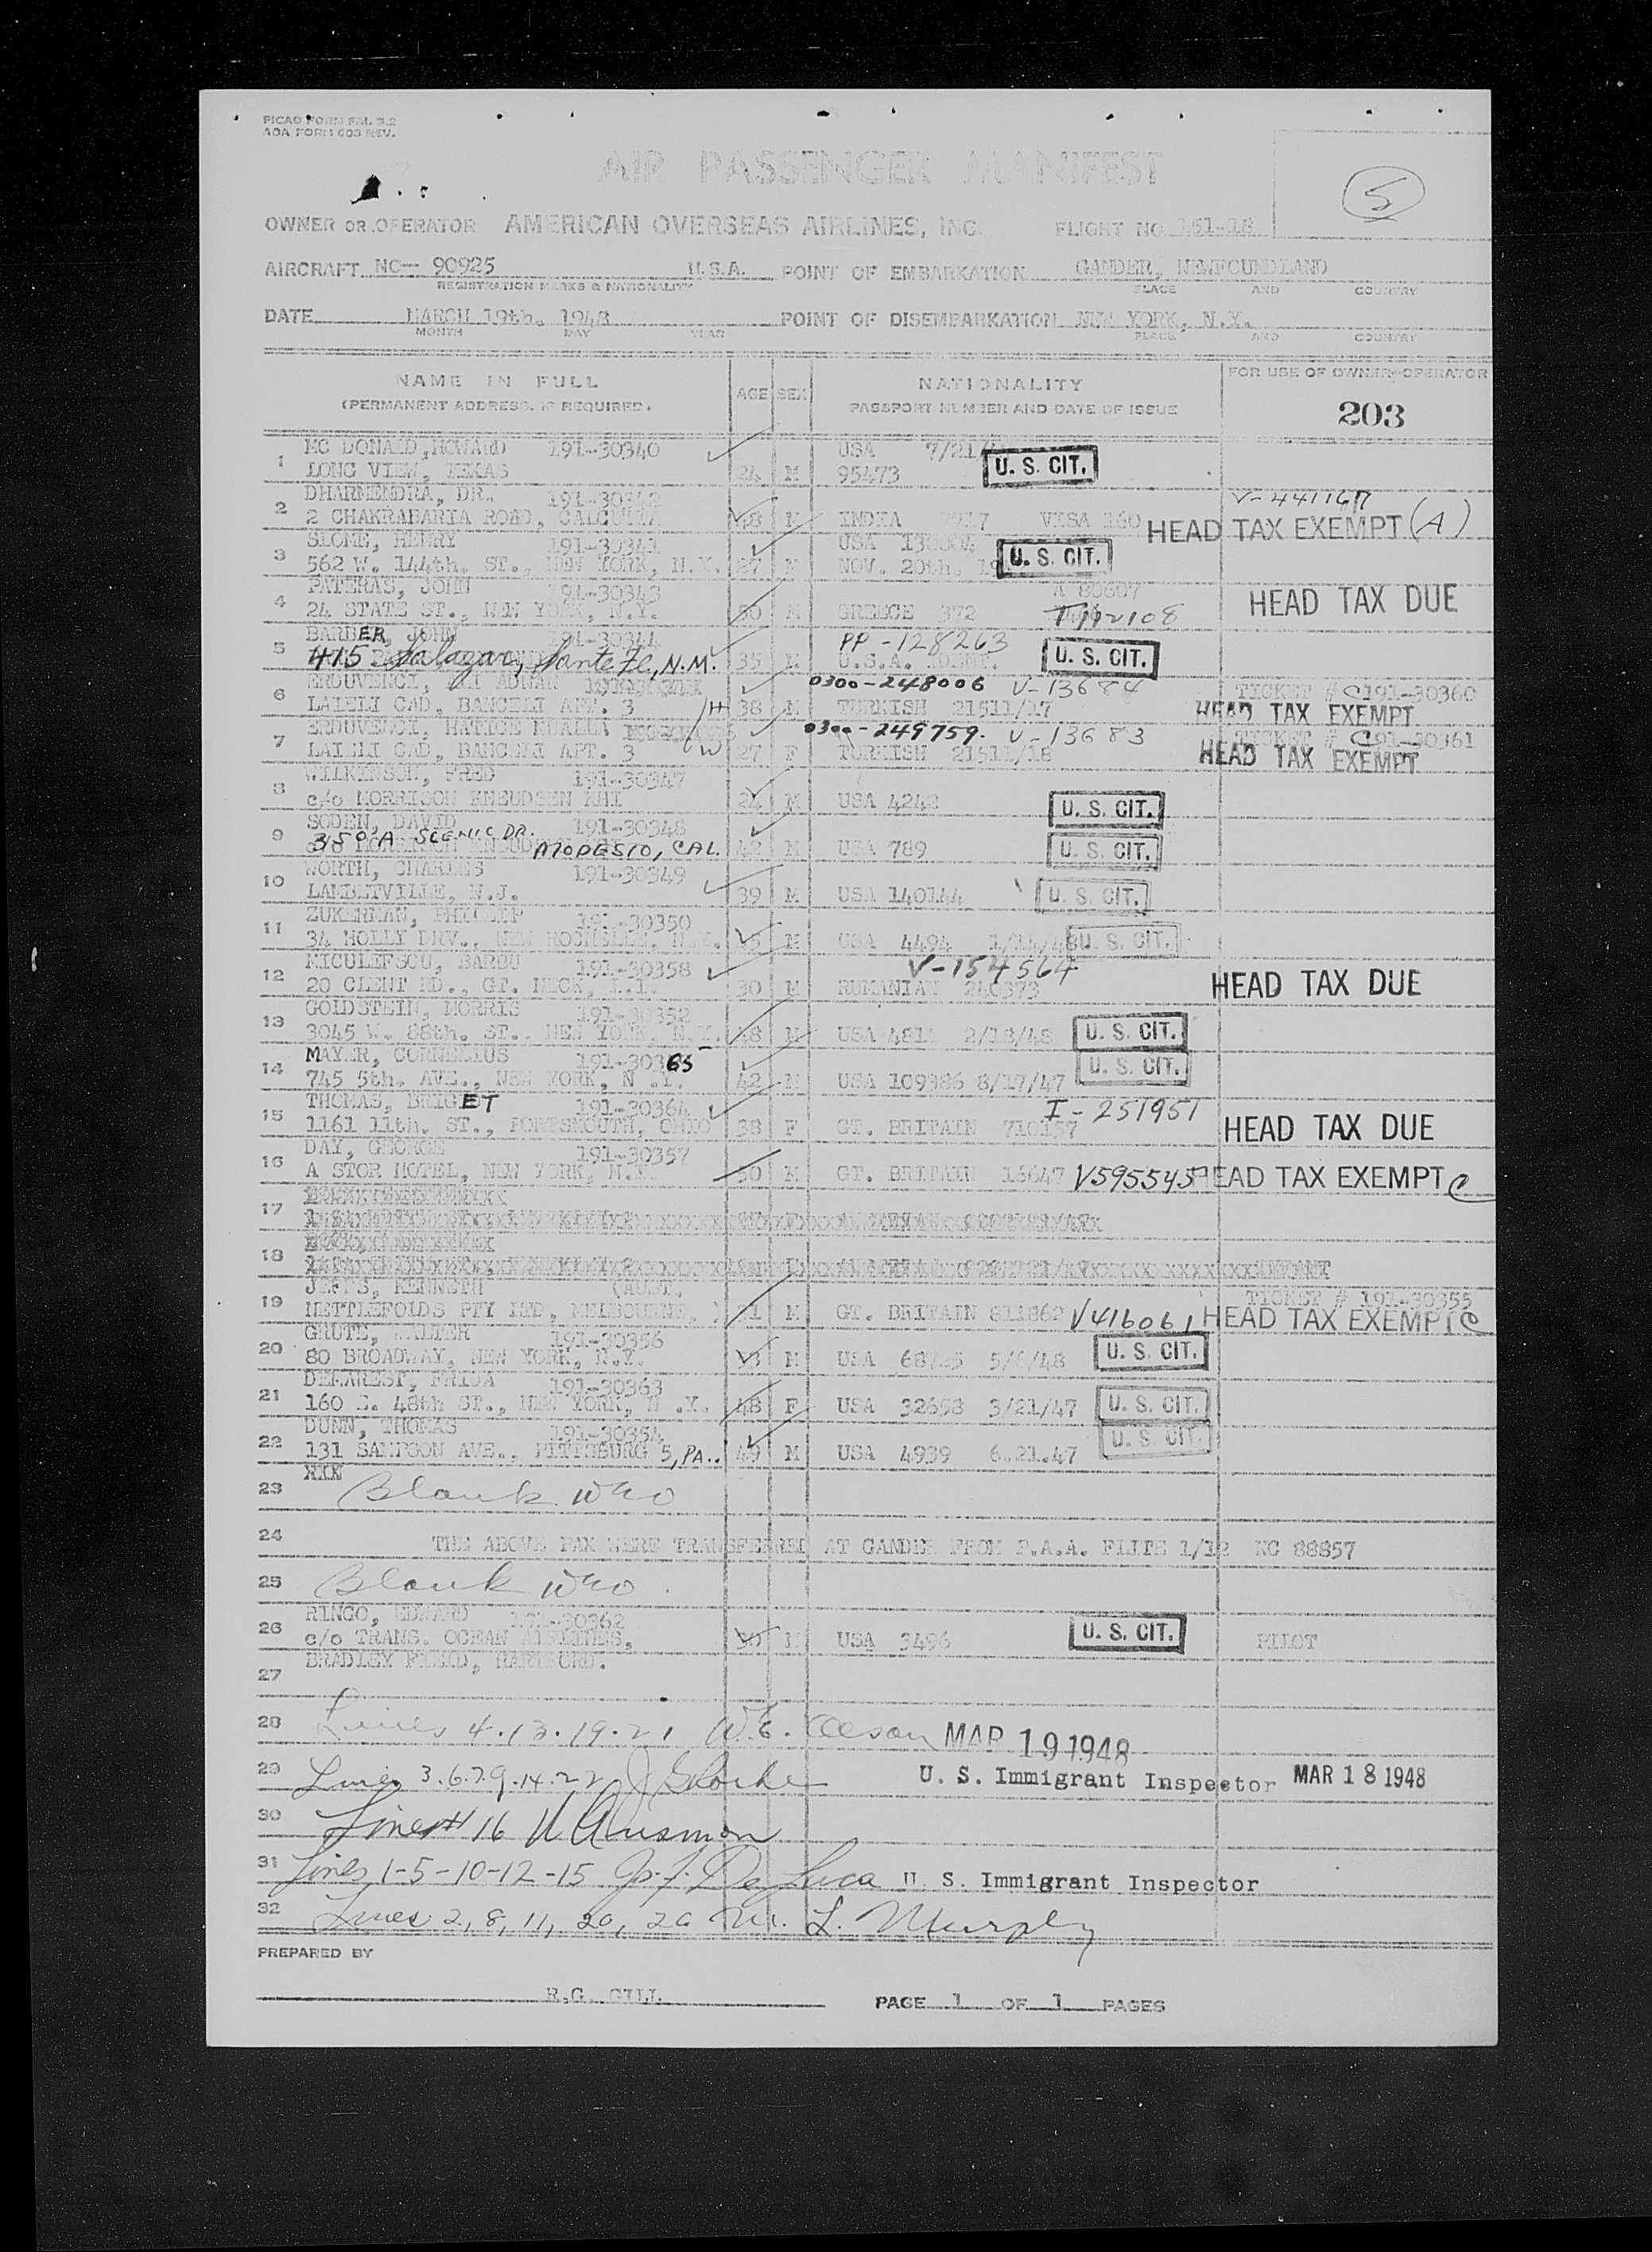 PICAO FORM FAL 3.2
AOA FORM 603 REV.
AIR PASSENGER MANIFEST
5
OWNER OR OPERATOR AMERICAN OVERSEAS AIRLINES, INC. FLIGHT NO. 151-18
AIRCRAFT NC-- 90925 U.S.A. POINT OF EMBARKATION GANDER, NEWFOUNDLAND
REGISTRATION MARKS & NATIONALITY PLACE AND COUNTRY
DATE MARCH 19th. 1948 POINT OF DISEMBARKATION NEW YORK, N.Y.
MONTH DAY YEAR PLACE AND COUNTRY
NAME IN FULL AGE SEX NATIONALITY FOR USE OF OWNER-OPERATOR
(PERMANENT ADDRESS, IF REQUIRED) PASSPORT NUMBER AND DATE OF ISSUE 203
1 MC DONALD, HOWARD 191-30340 USA 7/21/
LONG VIEW, TEXAS 24 M 95473 U. S. CIT.
2 DHARMENDRA, DR. 191-30342 V-441167
2 CHAKRABARIA ROAD, CALCUTTA 48 M INDIA VISA 160 HEAD TAX EXEMPT (A)
3 SLOME, HENRY 191-30341 USA
562 W. 144th. ST., NEW YORK, N.Y. 27 M NOV. 20th, U. S. CIT.
4 PATERAS, JOHN 191-30343 A 80607
24 STATE ST., NEW YORK, N.Y. 50 M GREECE 372 HEAD TAX DUE
5 BARBER, JOHN 191-30344 PP-128263
415 Salazar, Santa Fe, N.M. 35 M U.S.A. IDENT. U. S. CIT.
6 ERDUVENCI, ADNAN 0300-248006 V-13684 TICKET # C191-30360
LALELI CAD, BANCELI APT. 3 H 38 M TURKISH 21511/17 HEAD TAX EXEMPT
7 ERDUVENCI, HATICE MUALLA 0300-249759. V-13683 TICKET # C191-30361
LALELI CAD, BANCELI APT. 3 W 27 F TURKISH 21511/18 HEAD TAX EXEMPT
8 WILKINSON, FRED 191-30347
c/o MORRISON KNEUDSEN AHI 24 M USA 4242 U. S. CIT.
9 SODEN, DAVID 191-30348
350 A SCENIC DR. MODESTO, CAL. 42 M USA 789 U. S. CIT.
10 WORTH, CHARLES 191-30349
LAMBETVILLE, N.J. 39 M USA 140144 U. S. CIT.
11 ZUKERMAN, PHILLIP 191-30350
34 HOLLY DRV., NEW ROCHELLE, N.Y. M USA 4494 1/14/48 U. S. CIT.
12 NICULEFSCU, BARBU 191-30358 V-154564
20 CLENT RD., GT. NECK, L.I. 30 M RUMANIAN 240373 HEAD TAX DUE
13 GOLDSTEIN, MORRIS 191-30352
3045 W. 88th. ST., NEW YORK, N.Y. 48 M USA 481 2/18/48 U. S. CIT.
14 MAYER, CORNELIUS 191-30365
745 5th. AVE., NEW YORK, N.Y. 42 M USA 109386 8/17/47 U. S. CIT.
15 THOMAS, BRIGET 191-30364 I-251951
1161 11th. ST., PORTSMOUTH, OHIO 38 F GT. BRITAIN 710157 HEAD TAX DUE
16 DAY, GEORGE 191-30357
A STOR HOTEL, NEW YORK, N.Y. 50 M GT. BRITAIN 16647 V595545 HEAD TAX EXEMPT C
17
18
19 JEFFS, KENNETH (AUST. TICKET # 191-30355
NETTLEFOLDS PTY LTD, MELBOURNE, ) M GT. BRITAIN 811862 V416061 HEAD TAX EXEMPT C
20 GRUTE, WALTER 191-30356
80 BROADWAY, NEW YORK, N.Y. M USA 5/6/48 U. S. CIT.
21 DEMAREST, FRIDA 191-30363
160 E. 48th ST., NEW YORK, N.Y. 48 F USA 32658 3/21/47 U. S. CIT.
22 DUNN, THOMAS 191-30354
131 SAMPSON AVE., PITTSBURG 5, PA. 49 M USA 4939 6.21.47 U. S. CIT.
23 Blank
24 THE ABOVE PAX WERE TRANSFERRED AT GANDER FROM P.A.A. FLITE 1/12 NC 88857
25 Blank
26 RINGO, EDWARD 191-30362
c/o TRANS. OCEAN AIRLINES, 30 M USA 3496 U. S. CIT. PILOT
27 BRADLEY FIELD, HARTFORD.
28 Lines 4.13.19.21 MAR 19 1948
29 Lines 3.6.7.9.14.22 U. S. Immigrant Inspector MAR 18 1948
30 Line # 16
31 Lines 1-5-10-12-15 De Luca U. S. Immigrant Inspector
32 Lines 2, 8, 11, 20, 26 M. L. Murphy
PREPARED BY
R.G. GILL PAGE 1 OF 1 PAGES